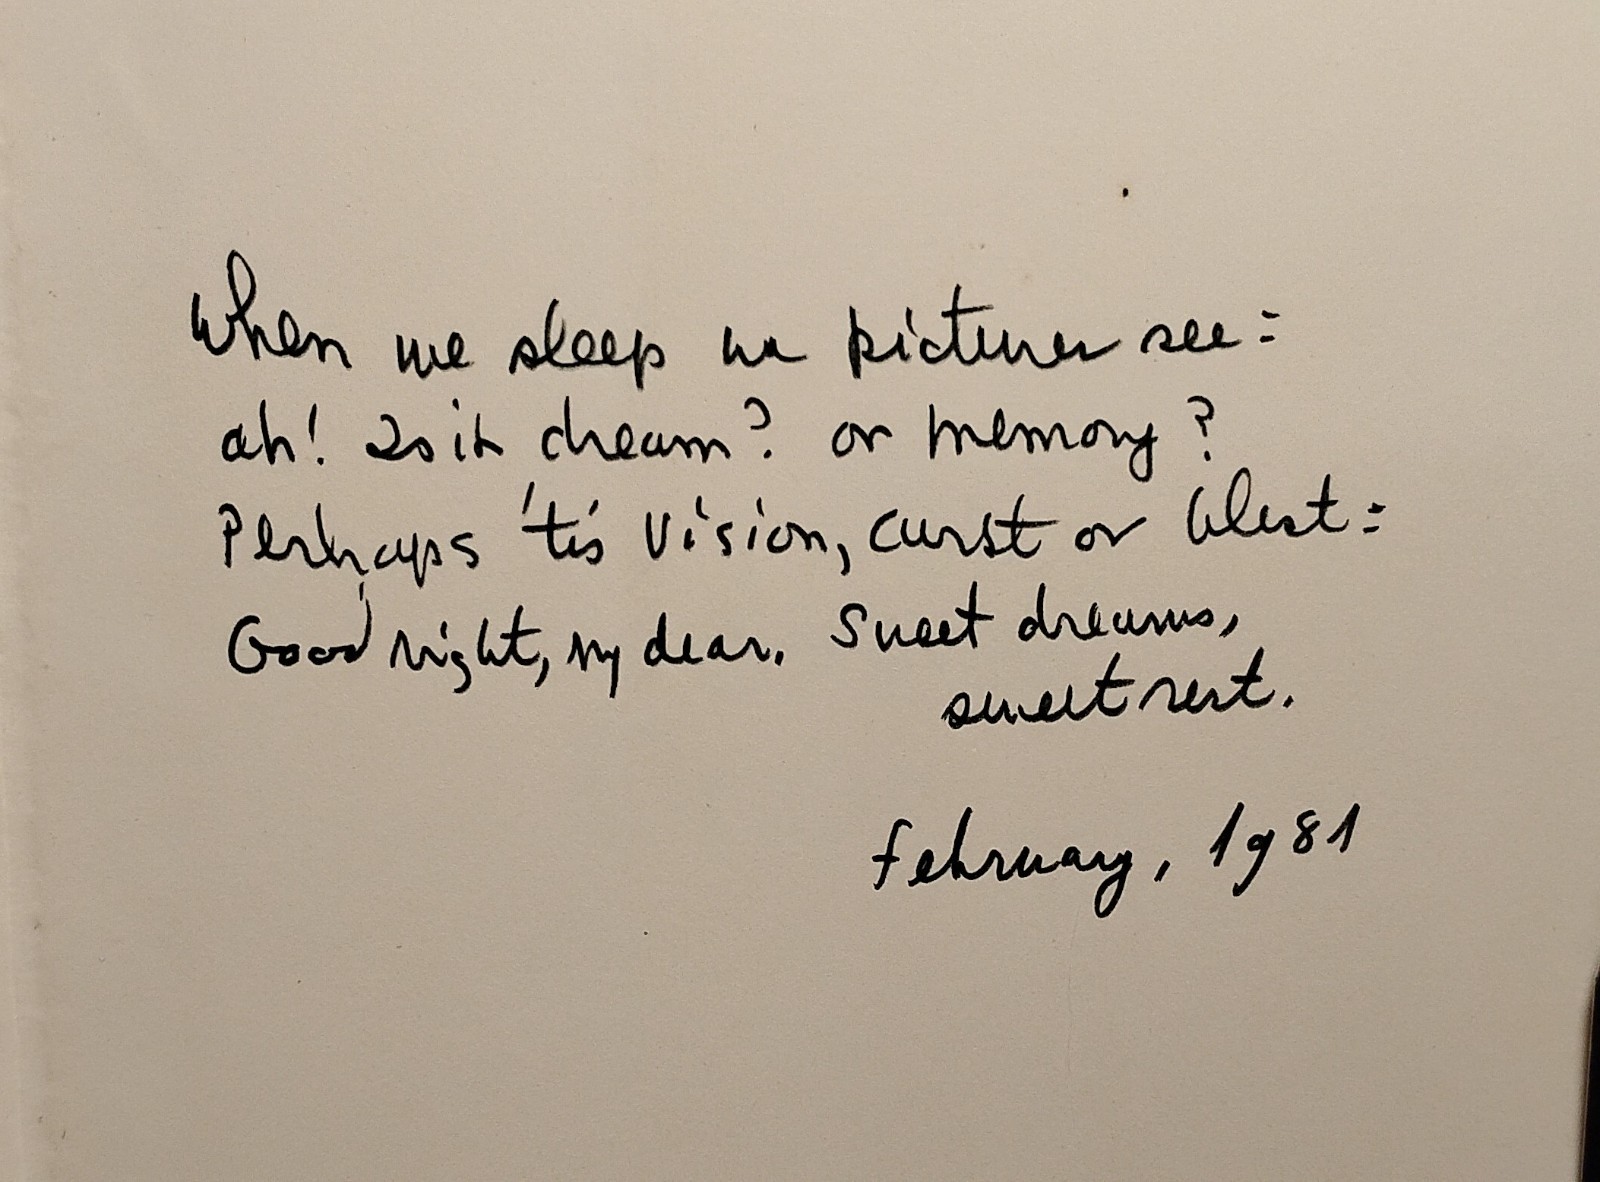 When we sleep we pictures see:
ah! Is it dream? or memory?
Perhaps 'tis Vision, curst or blest:
Good night, my dear. Sweet dreams,
sweet rest.
February, 1981